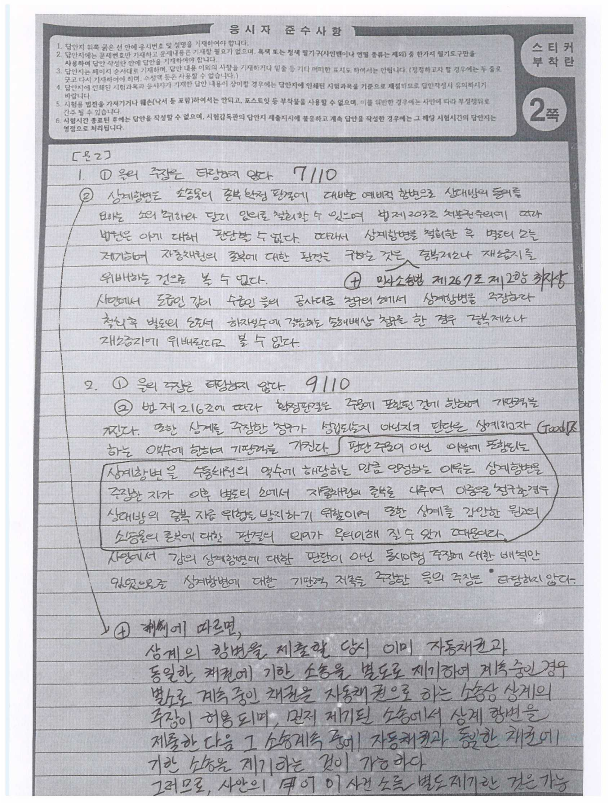 응시자 준수사항
1. 답안지 위쪽 굵은 선 안에 응시번호 및 성명을 기재하여야 합니다.
6. 시험시간 종료된 후에는 답안을 작성할 수 없으며, 시험감독관의 답안지 제출지시에 불응하고 계속 답안을 작성한 경우에는 그 해당 시험시간의 답안지는
영점으로 처리됩니다.
스티커
부착란
2쪽
[문2]
1. ① 을의 주장은 타당하지 않다. 7/10
② 상계항변도 소송물의 존부 확정 판결에 대비한 예비적 항변으로 상대방의 동의를
받는 소의 취하와 달리 임의로 철회할 수 있으며 법 제203조 처분권주의에 따라
법원은 이에 대해 판단할 수 없다. 따라서 상계항변을 철회한 후 별도의 소를
제기하여 자동채권의 존부에 대한 판결을 구하는 것은 중복제소나 재소금지를
위배하는 것으로 볼 수 없다. ⊕ 민사소송법 제267조 제2항 취지상
사안에서 도급인 갑이 수급인 을의 공사대금 청구의 소에서 상계항변을 주장하다
철회 후 별도의 소송서 하자보수에 갈음하는 손해배상 청구를 한 경우 중복제소나
재소금지에 위배된다고 볼 수 없다.
2. ① 을의 주장은 타당하지 않다. 9/10
② 법 제216조에 따라 확정판결은 주문에 포함된 것에 한하여 기판력을
가진다. 또한 상계를 주장한 청구가 성립되는지 아닌지의 판단은 상계하고자 Good!
하는 액수에 한하여 기판력을 가진다. 판단 주문이 아닌 이유에 포함되는
상계항변을 수동채권의 액수에 해당하는 만큼 인정하는 이유는 상계항변을
주장한 자가 이후 별도의 소에서 자동채권의 존부로 다투며 이행을 청구한 경우
상대방의 중복 지급 위험을 방지하기 위함이며 또한 상계를 간안한 원고의
소송물의 존부에 대한 판결의 의미가 무의미해 질 수 있기 때문이다.
사안에서 갑의 상계항변에 대한 판단이 아닌 동시이행 주장에 대한 배척만
있었으므로 상계항변에 대한 기판력 저촉을 주장한 을의 주장은 타당하지 않다.
⊕ 判例에 따르면,
상계의 항변을 제출할 당시 이미 자동채권과
동일한 채권에 기한 소송을 별도로 제기하여 계속 중인 경우
별소로 계속 중인 채권을 자동채권으로 하는 소송상 상계의
주장이 허용되며, 먼저 제기된 소송에서 상계 항변을
제출한 다음 그 소송계속 중에 자동채권과 동일한 채권에
기한 소송을 제기하는 것이 가능하다
그러므로, 사안의 甲이 이 사건 소를 별도 제기한 것은 가능